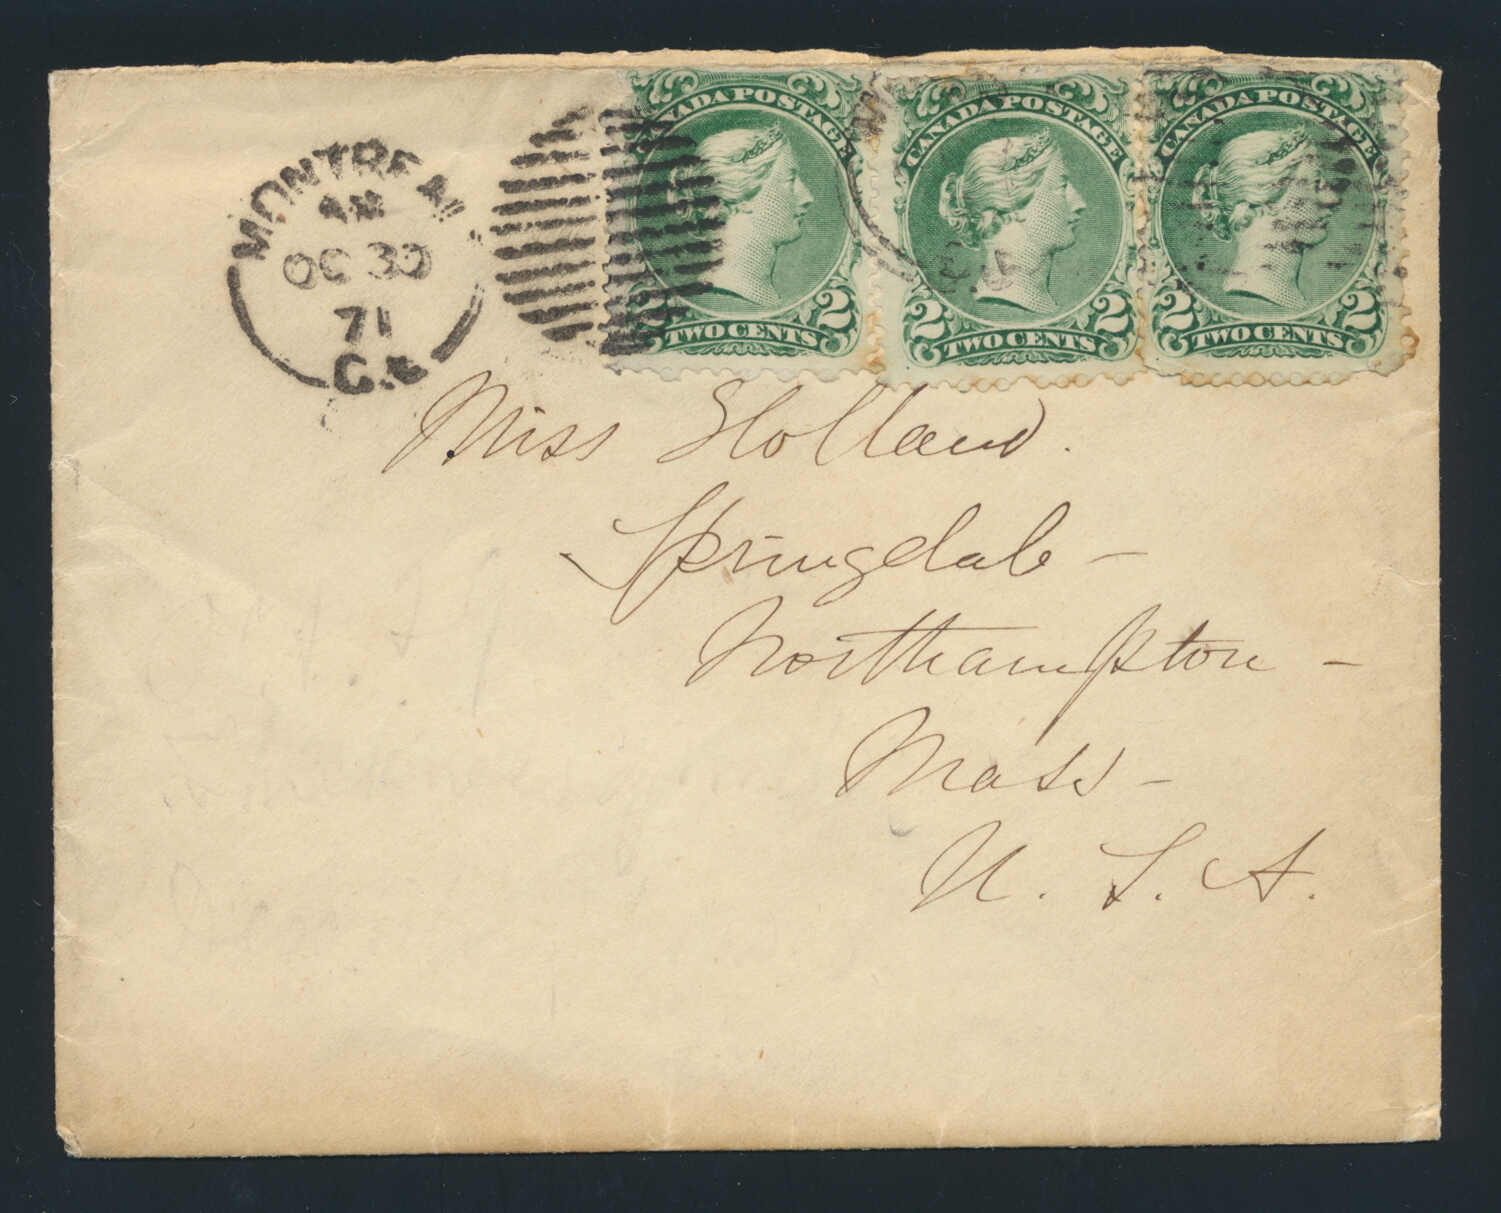 MONTREAL
AM
OC 30
71
C.E
CANADA POSTAGE
2 TWO CENTS 2
CANADA POSTAGE
2 TWO CENTS 2
CANADA POSTAGE
2 TWO CENTS 2
Miss Holland.
Springdale -
Northampton -
Mass -
U. S. A.